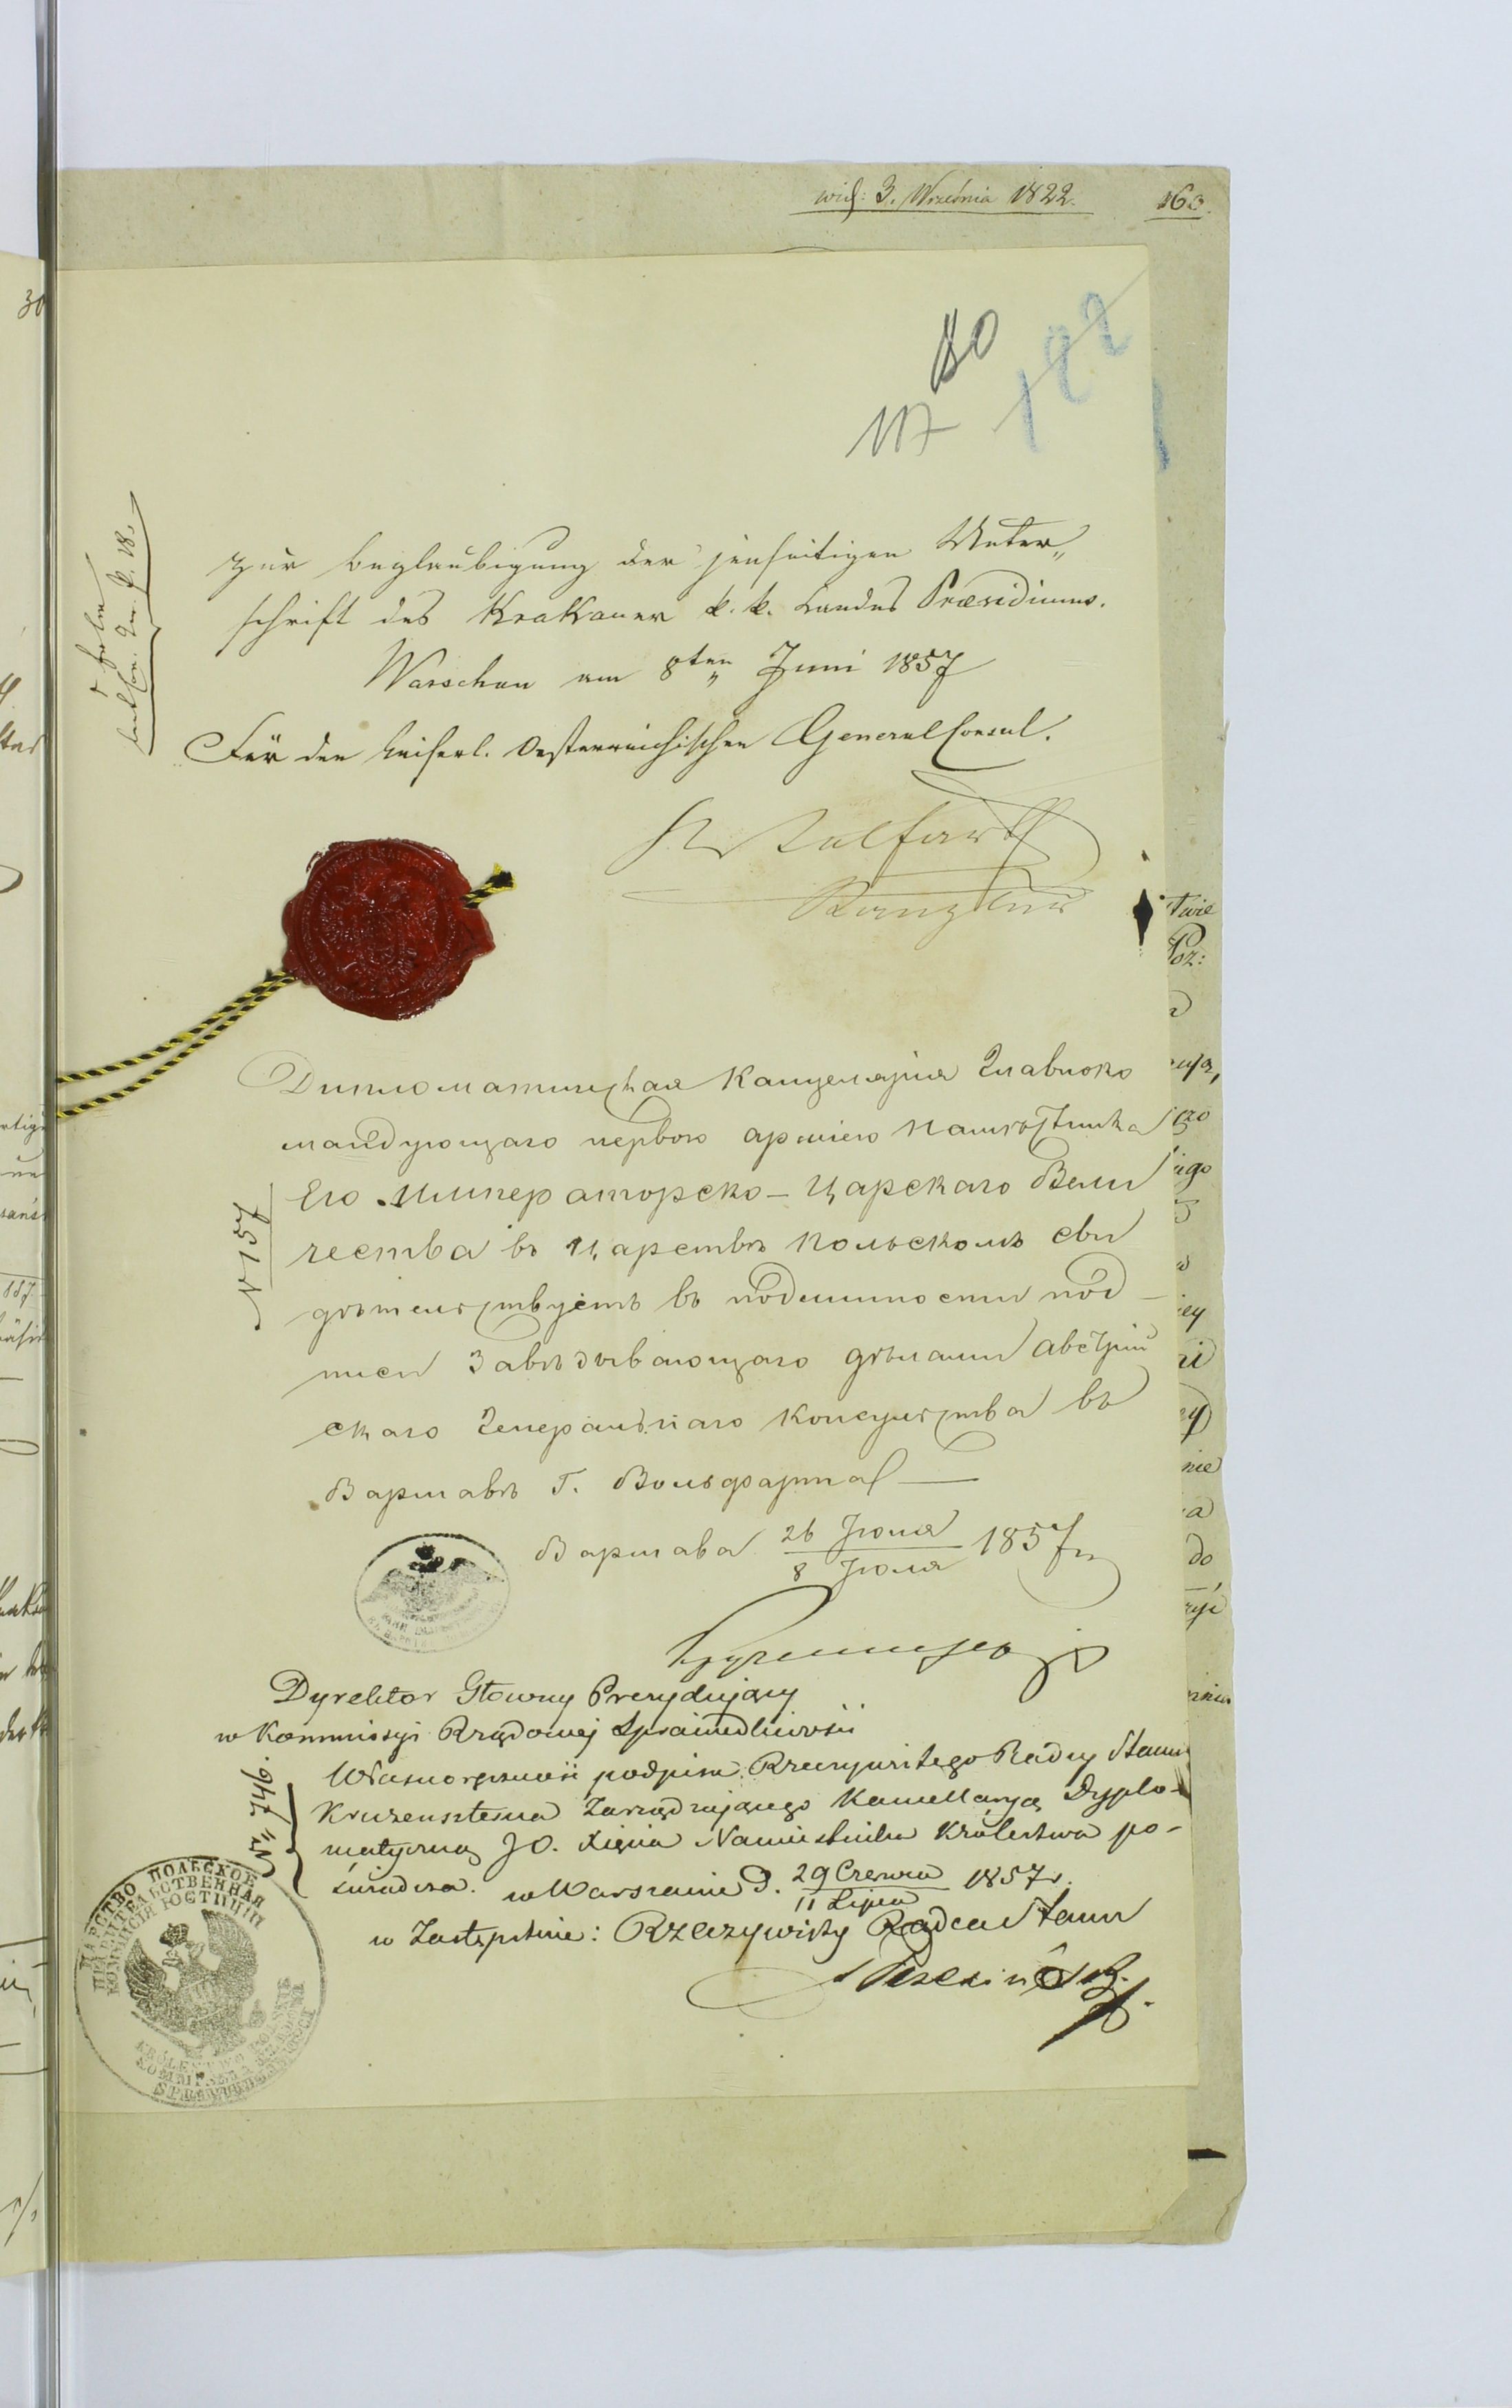 3. Września 1822.
163.
80
117
192
zur Beglaubigung der jenseitigen Unter„
schrift des Krakauer k. k. Landes Præsidiums.
Warschau am 8ten Juni 1857
Für den kaiserl. Oesterreichischen GeneralConsul.
Kanzler
Дипломатическая Канцелярія Главноко
мандующаго первою арміею Намѣстника
Его Императорско-Царскаго Вели
чества въ Царствѣ Польскомъ сви
дѣтельствуетъ въ подлинности под-
писи Завѣдывающаго дѣлами Австрій
скаго Генеральнаго Консульства въ
Варшавѣ Г. Вольфарта
N 757
Варшава 26 Іюня / 8 Іюля 1857 г.
Dyrektor Głowny Prezydujący
w Kommissyi Rządowej Sprawiedliwości
Własnoręczność podpisu Rzeczywistego Radcy Stanu
Kruzenszterna Zarządzającego Kancellaryą Dyplo-
matyczną JO. Xięcia Namiestnika Królestwa po-
świadcza. w Warszawie d. 29 Czerwca / 11 Lipca 1857 r.
w Zastępstwie: Rzeczywisty Radca Stanu
ЦАРСТВО ПОЛЬСКОЕ
ПРАВИТЕЛЬСТВЕННАЯ
КОМИСІЯ ЮСТИЦІИ
KRÓLESTWO POLSKIE
KOMMISSYA RZĄDOWA
SPRAWIEDLIWOŚCI